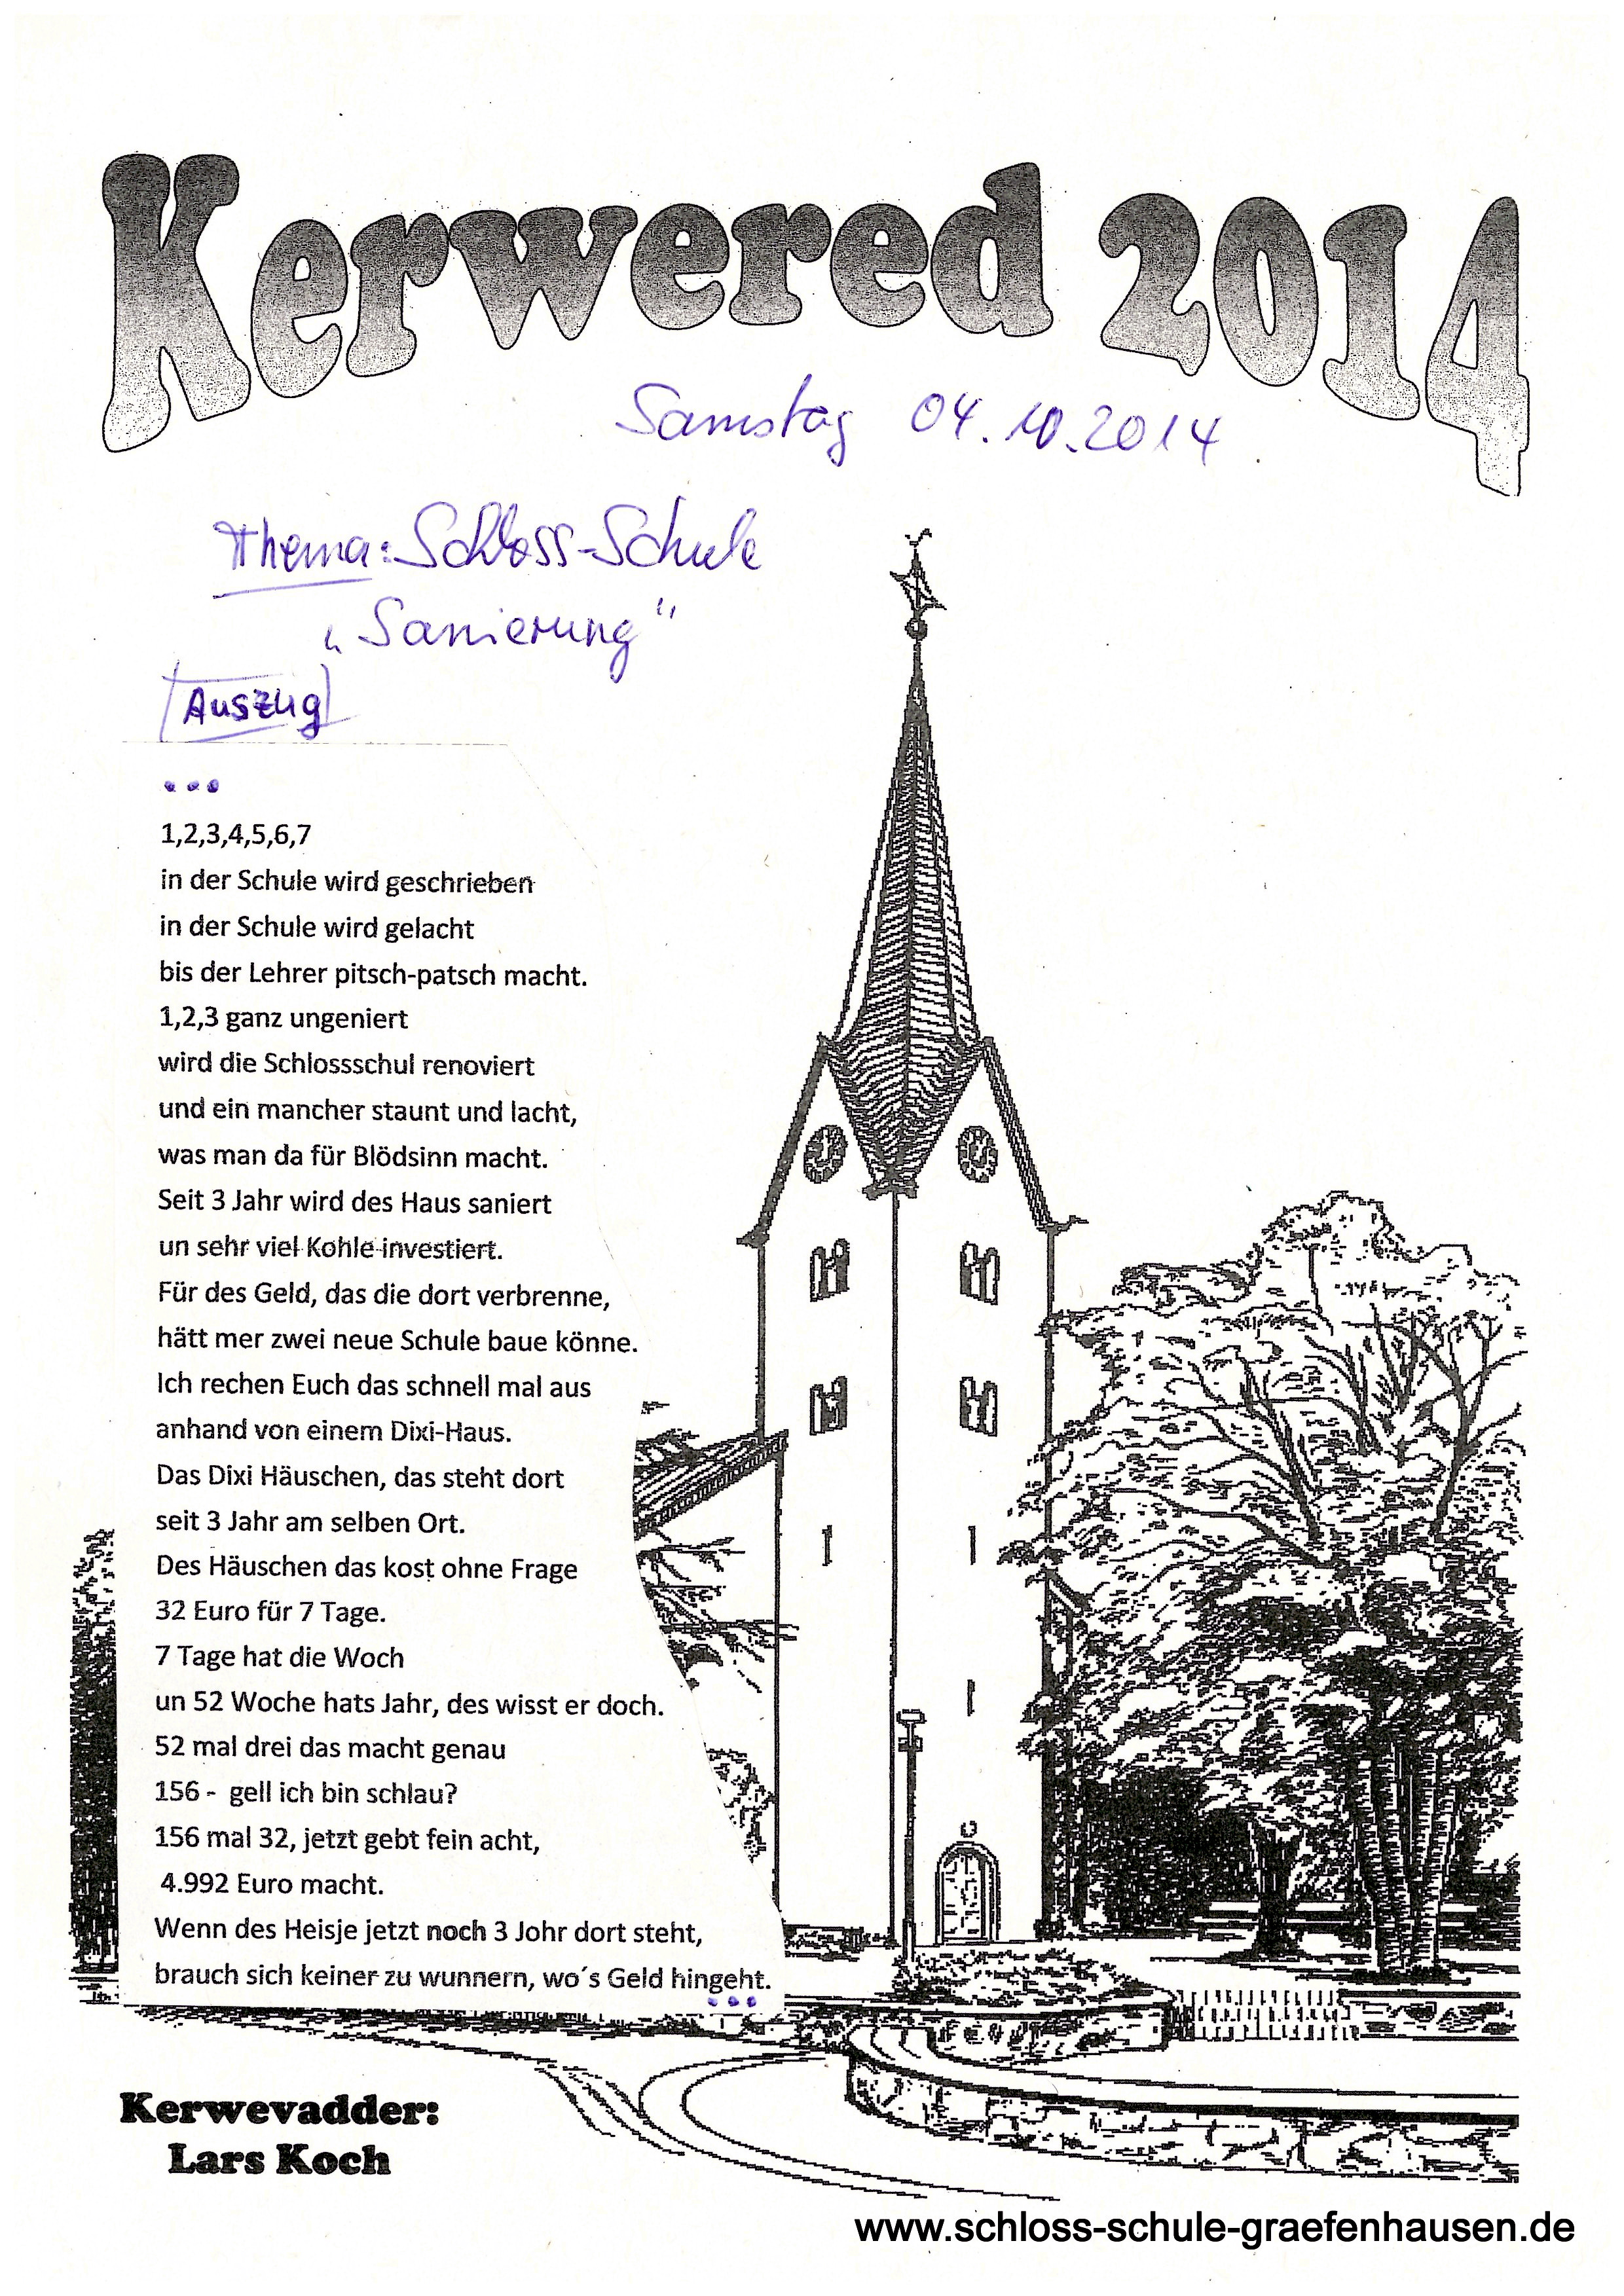 Kerwered 2014
Samstag 04.10.2014
Thema: Schloss-Schule
„Sanierung“
Auszug
...
1,2,3,4,5,6,7
in der Schule wird geschrieben
in der Schule wird gelacht
bis der Lehrer pitsch-patsch macht.
1,2,3 ganz ungeniert
wird die Schlossschul renoviert
und ein mancher staunt und lacht,
was man da für Blödsinn macht.
Seit 3 Jahr wird des Haus saniert
un sehr viel Kohle investiert.
Für des Geld, das die dort verbrenne,
hätt mer zwei neue Schule baue könne.
Ich rechen Euch das schnell mal aus
anhand von einem Dixi-Haus.
Das Dixi Häuschen, das steht dort
seit 3 Jahr am selben Ort.
Des Häuschen das kost ohne Frage
32 Euro für 7 Tage.
7 Tage hat die Woch
un 52 Woche hats Jahr, des wisst er doch.
52 mal drei das macht genau
156 - gell ich bin schlau?
156 mal 32, jetzt gebt fein acht,
4.992 Euro macht.
Wenn des Heisje jetzt noch 3 Johr dort steht,
brauch sich keiner zu wunnern, wo´s Geld hingeht.
...
Kerwevadder:
Lars Koch
www.schloss-schule-graefenhausen.de